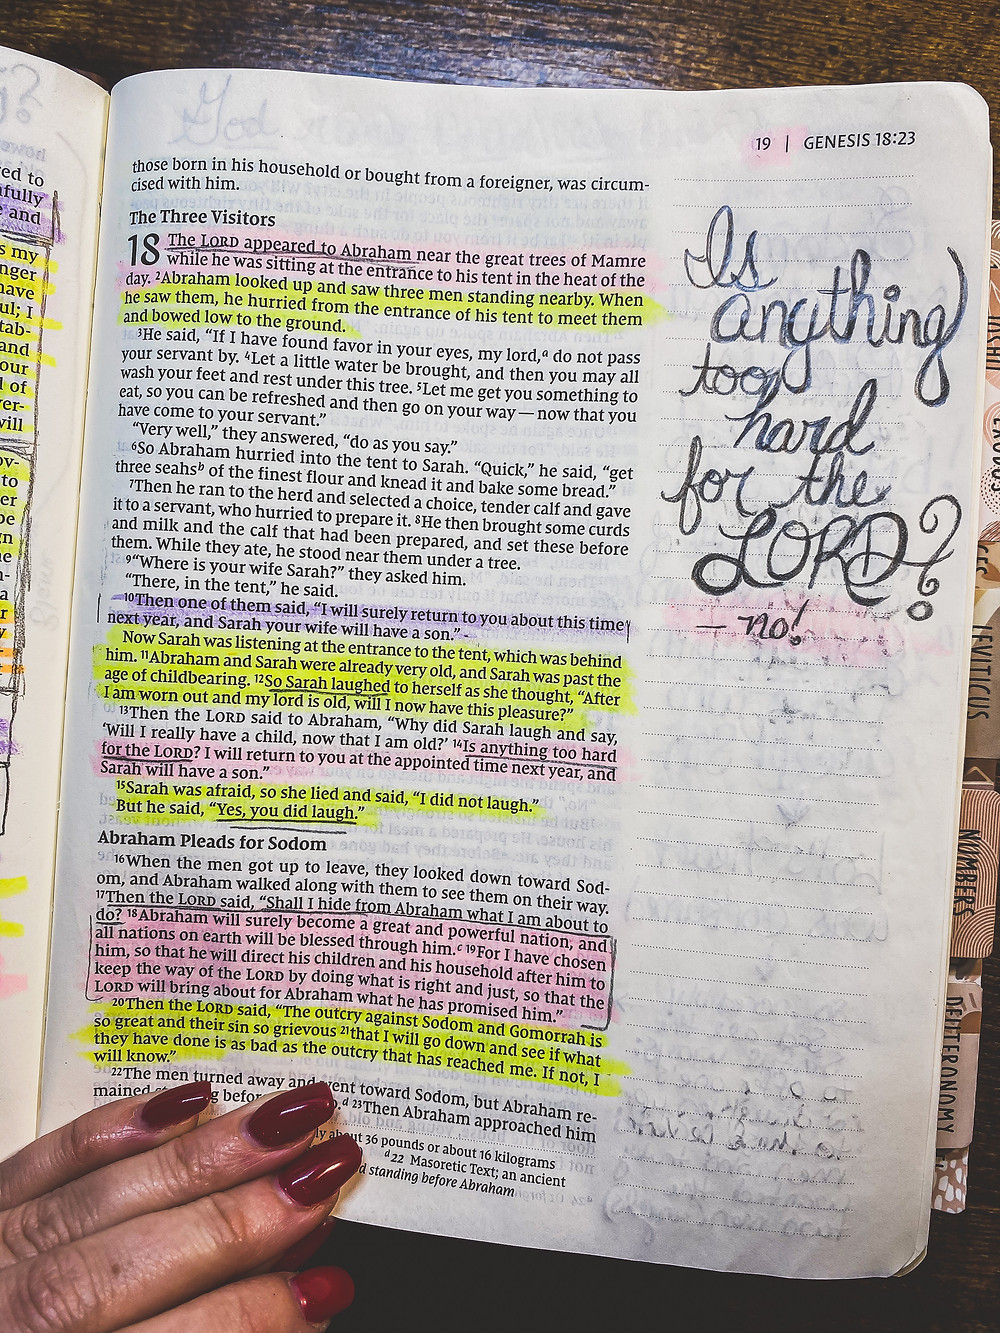 God
19 | GENESIS 18:23
those born in his household or bought from a foreigner, was circum-
cised with him.
The Three Visitors
18 The LORD appeared to Abraham near the great trees of Mamre
while he was sitting at the entrance to his tent in the heat of the
day. 2Abraham looked up and saw three men standing nearby. When
he saw them, he hurried from the entrance of his tent to meet them
and bowed low to the ground.
3He said, “If I have found favor in your eyes, my lord,a do not pass
your servant by. 4Let a little water be brought, and then you may all
wash your feet and rest under this tree. 5Let me get you something to
eat, so you can be refreshed and then go on your way — now that you
have come to your servant.”
“Very well,” they answered, “do as you say.”
6So Abraham hurried into the tent to Sarah. “Quick,” he said, “get
three seahsb of the finest flour and knead it and bake some bread.”
7Then he ran to the herd and selected a choice, tender calf and gave
it to a servant, who hurried to prepare it. 8He then brought some curds
and milk and the calf that had been prepared, and set these before
them. While they ate, he stood near them under a tree.
9“Where is your wife Sarah?” they asked him.
“There, in the tent,” he said.
10Then one of them said, “I will surely return to you about this time
next year, and Sarah your wife will have a son.”
Now Sarah was listening at the entrance to the tent, which was behind
him. 11Abraham and Sarah were already very old, and Sarah was past the
age of childbearing. 12So Sarah laughed to herself as she thought, “After
I am worn out and my lord is old, will I now have this pleasure?”
13Then the LORD said to Abraham, “Why did Sarah laugh and say,
‘Will I really have a child, now that I am old?’ 14Is anything too hard
for the LORD? I will return to you at the appointed time next year, and
Sarah will have a son.”
15Sarah was afraid, so she lied and said, “I did not laugh.”
But he said, “Yes, you did laugh.”
Abraham Pleads for Sodom
16When the men got up to leave, they looked down toward Sod-
om, and Abraham walked along with them to see them on their way.
17Then the LORD said, “Shall I hide from Abraham what I am about to
do? 18Abraham will surely become a great and powerful nation, and
all nations on earth will be blessed through him.c 19For I have chosen
him, so that he will direct his children and his household after him to
keep the way of the LORD by doing what is right and just, so that the
LORD will bring about for Abraham what he has promised him.”
20Then the LORD said, “The outcry against Sodom and Gomorrah is
so great and their sin so grievous 21that I will go down and see if what
they have done is as bad as the outcry that has reached me. If not, I
will know.”
22The men turned away and went toward Sodom, but Abraham re-
mained d 23Then Abraham approached him
about 36 pounds or about 16 kilograms
d22 Masoretic Text; an ancient
standing before Abraham
Is
anything
too
hard
for the
LORD?
- no!
EXODUS
LEVITICUS
NUMBERS
DEUTERONOMY